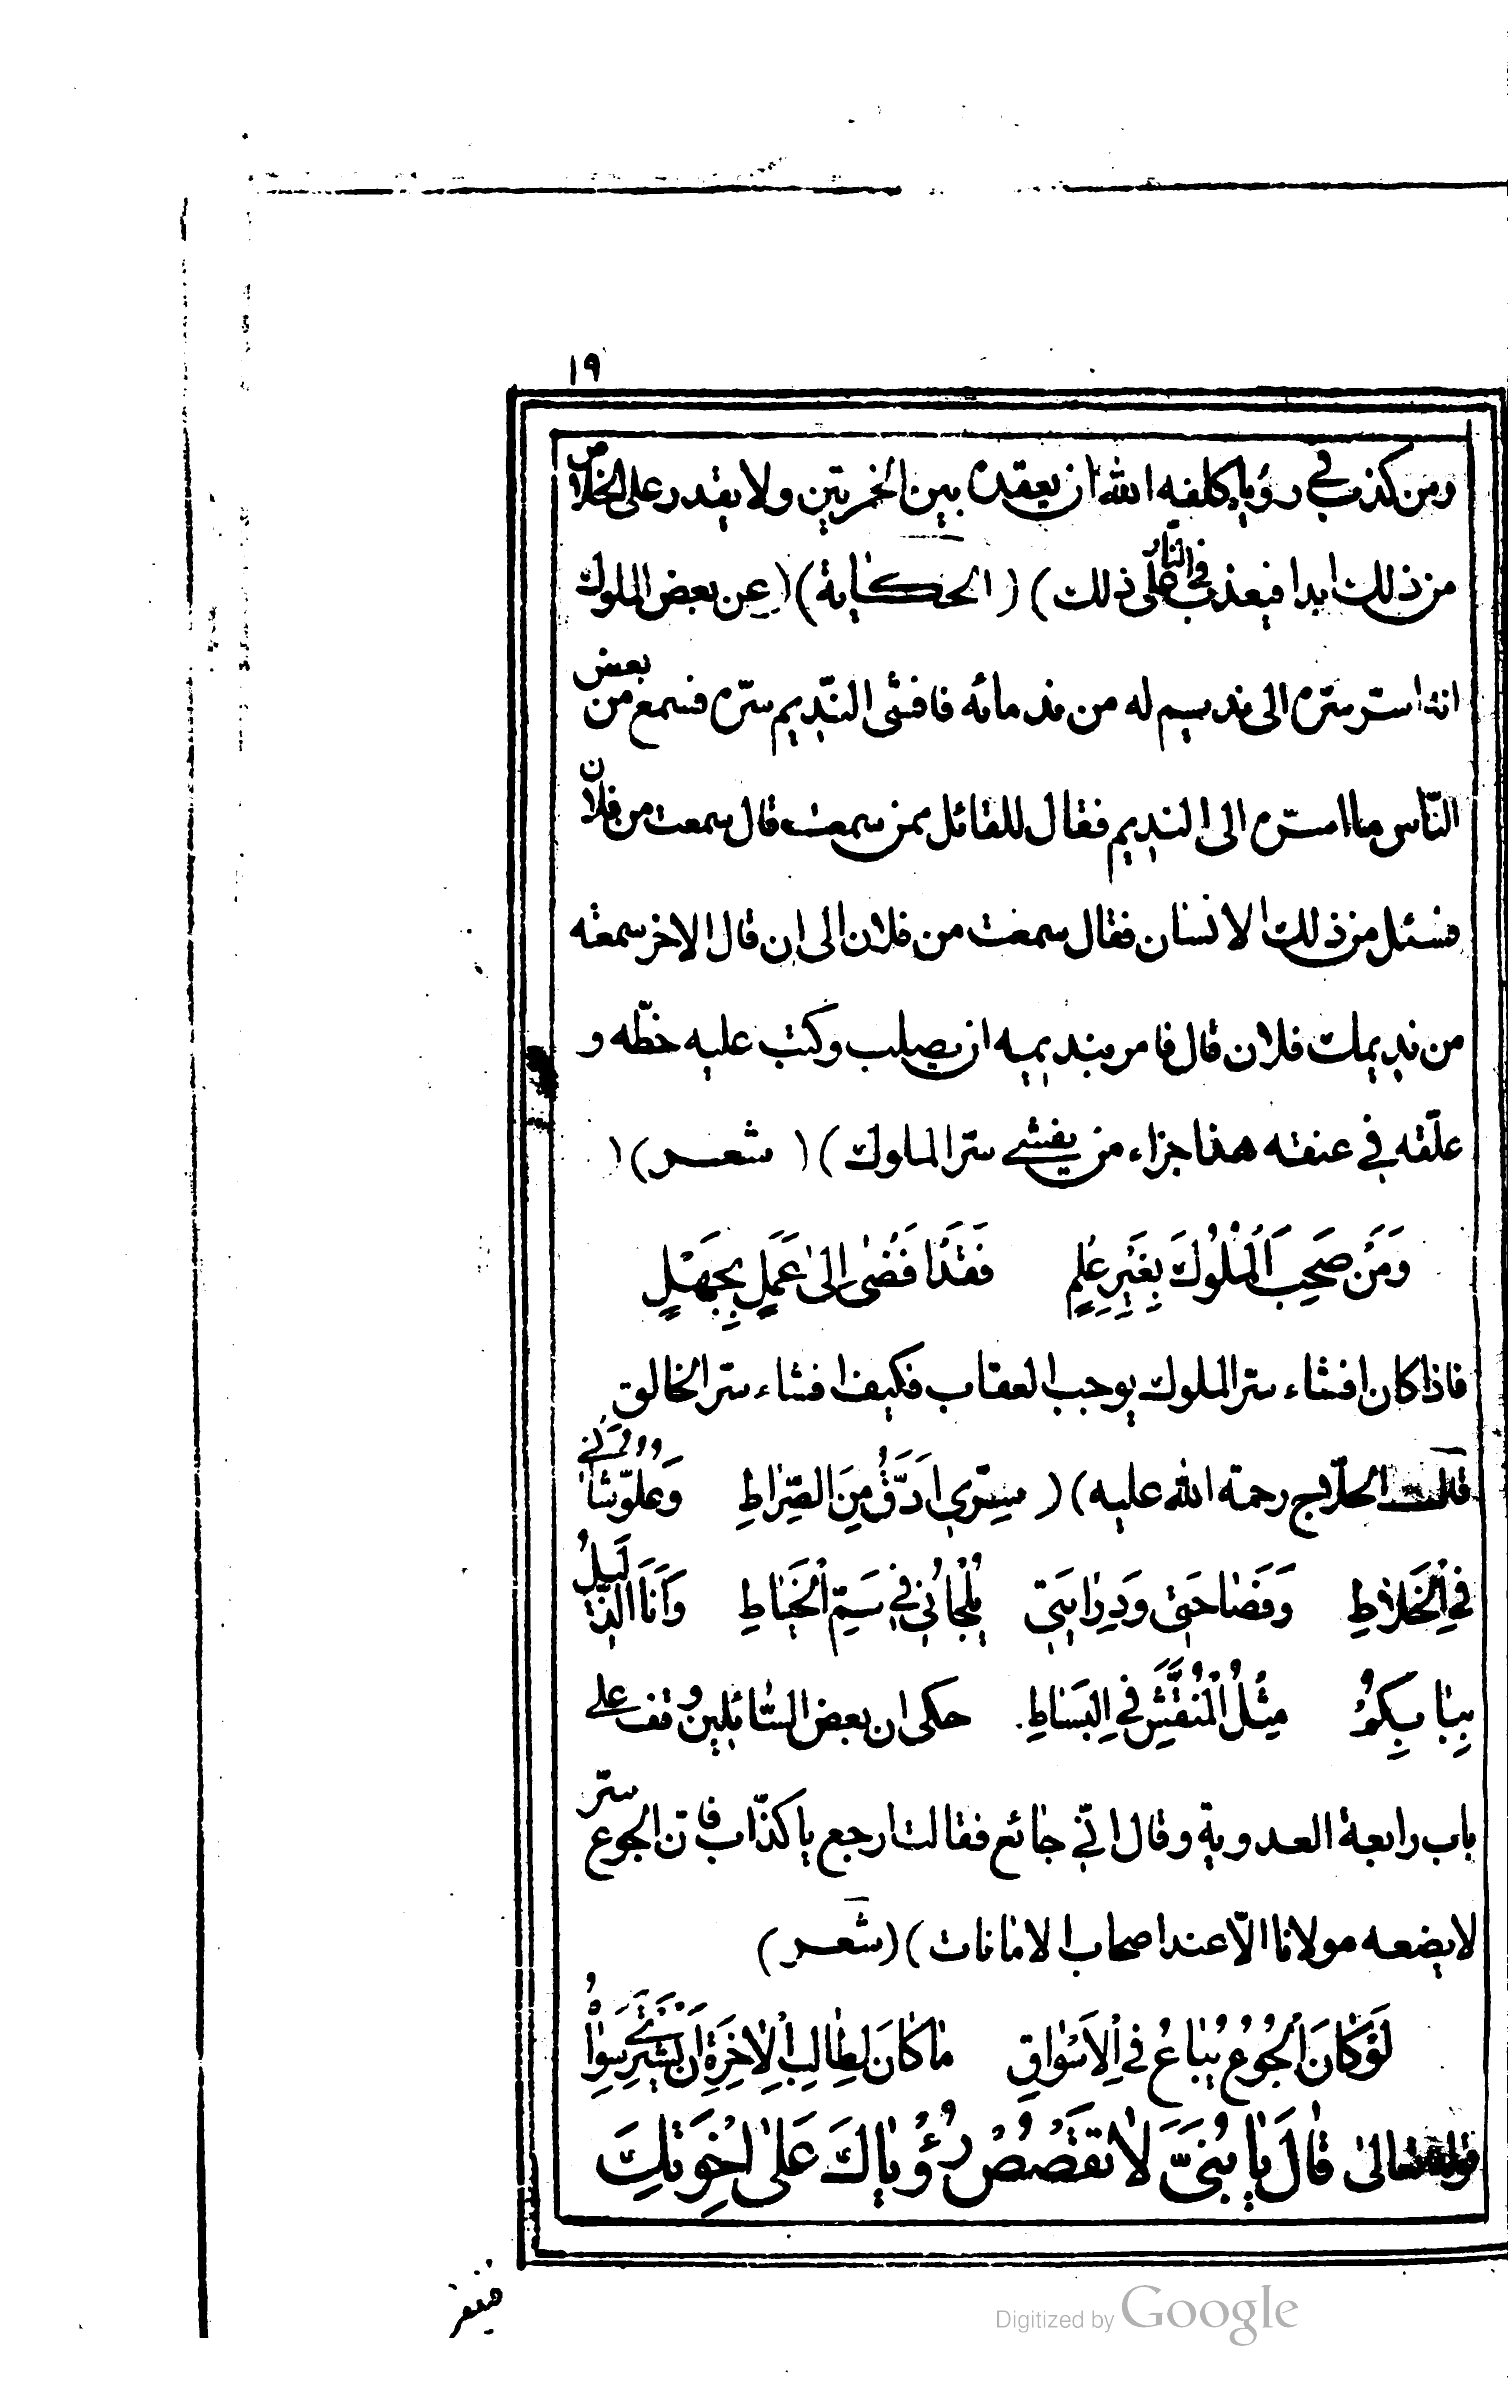 ١٩
ومن كذب في رؤياه كلفه الله ان يعقده بين الخريتين ولا يقدر على الخلاص
من ذلك ابدا فيعذب في النار على ذلك ) ( الحكاية ) ( عن بعض الملوك
انه استر سرّه الى نديم له من ندمائه فافشى النّديم سرّه فسمع من بعض
النّاس ما اسرّه الى النديم فقال للقائل ممن سمعت قال سمعت من فلان
فسئل من ذلك الانسان فقال سمعت من فلان الى ان قال الاخر سمعته
من نديمك فلان قال فامر بنديمه ان يصلب وكتب عليه خطّه و
علّقه في عنقه هذا جزاء من يفشي سرّ الملوك ) ( شعر ) (
وَمَنْ صَحِبَ الْمُلُوكَ بِغَيْرِ عِلْمٍ فَقَدْ اَفْضٰى اِلىٰ عَمَلٍ بِجَهْلٍ
فاذا كان افشاء سرّ الملوك يوجب العقاب فكيف افشاء سرّ الخالق
الحلّاج رحمة الله عليه ) ( سِرّي اَدَقُّ مِنَ الصِّرَاطِ وَعُلُوّ شَانِي
فِي الْخَلَاطِ وَفَصَاحَتِي وَدِرَايَتِي يُلْجَانِي فِي سَمِّ الْخِيَاطِ وَاَنَا الذَّلِيلُ
بِبَابِكُمْ مِثْلُ الْمُنَقَّشِ فِي الْبَسَاطِ. حكى ان بعض السّائلين وقف على
باب رابعة العدوية وقال انّي جائع فقالت ارجع يا كذّاب فانّ الجوع سرّ
لا يضعه مولانا الّا عند اصحاب الامانات ) ( شعر )
لَوْ كَانَ الْجُوعُ يُبَاعُ فِي الْاَسْوَاقِ مَا كَانَ لِطَالِبِ الْاٰخِرَةِ اَنْ يَشْتَرِيَ سِوَاهُ
قوله تعالىٰ قَالَ يَا بُنَيَّ لَا تَقْصُصْ رُؤْيَاكَ عَلىٰ اِخْوَتِكَ
Digitized by Google